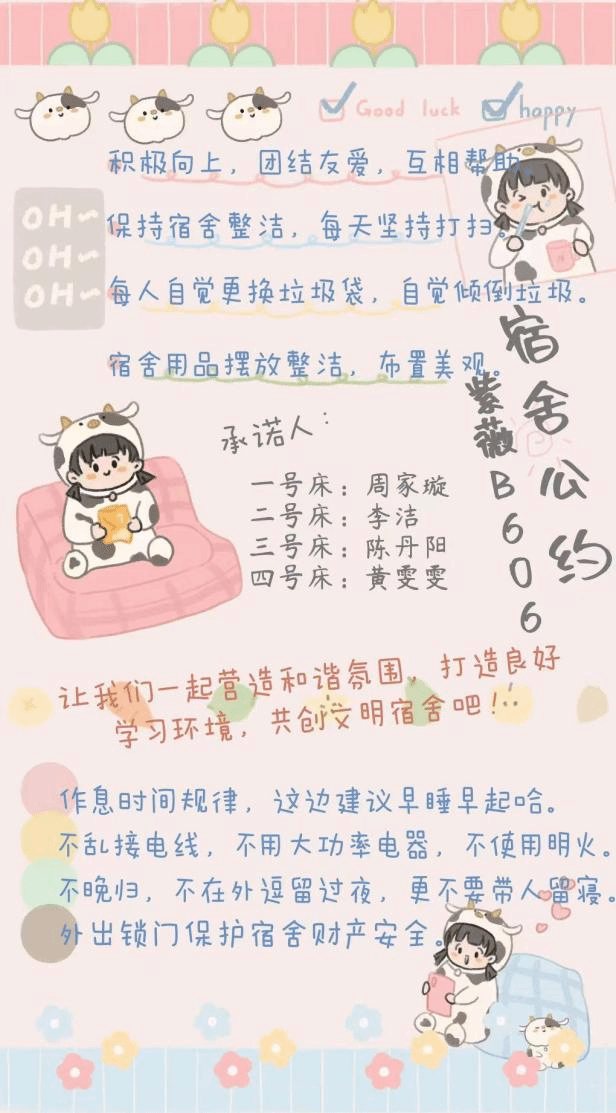 Good luck
happy
积极向上，团结友爱，互相帮助。
OH~
OH~
OH~
保持宿舍整洁，每天坚持打扫。
每人自觉更换垃圾袋，自觉倾倒垃圾。
宿舍用品摆放整洁，布置美观。
宿舍公约
紫薇B606
承诺人：
一号床：周家璇
二号床：李洁
三号床：陈丹阳
四号床：黄雯雯
让我们一起营造和谐氛围，打造良好
学习环境，共创文明宿舍吧！
作息时间规律，这边建议早睡早起哈。
不乱接电线，不用大功率电器，不使用明火。
不晚归，不在外逗留过夜，更不要带人留寝。
外出锁门保护宿舍财产安全。